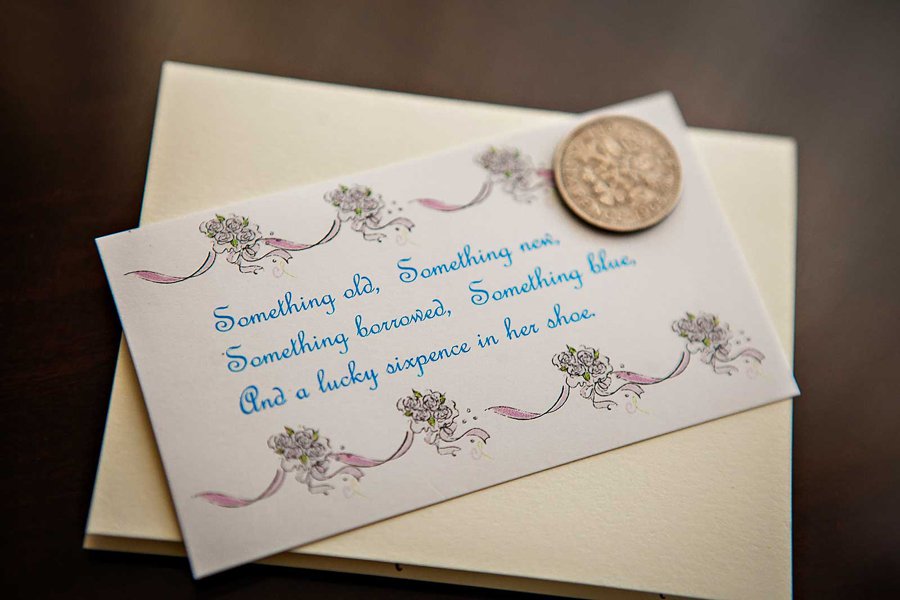 Something old, Something new,
Something borrowed, Something blue,
And a lucky sixpence in her shoe.